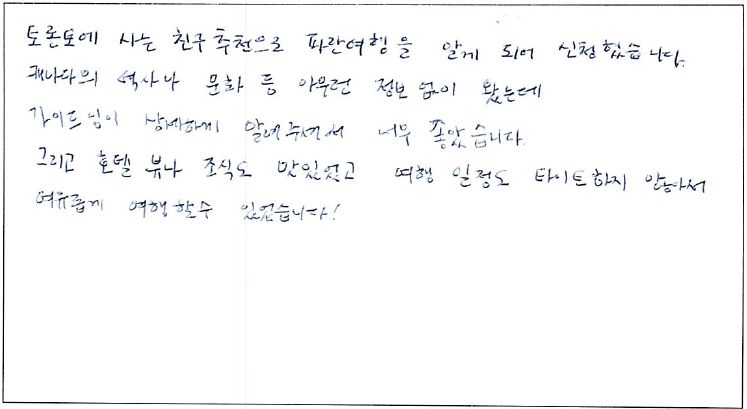 토론토에 사는 친구 추천으로 파란여행을 알게 되어 신청했습니다.
캐나다의 역사나 문화 등 아무런 정보 없이 왔는데
가이드님이 상세하게 알려주셔서 너무 좋았습니다.
그리고 호텔 뷰나 조식도 맛있었고 여행 일정도 타이트하지 않아서
여유롭게 여행할수 있었습니다!